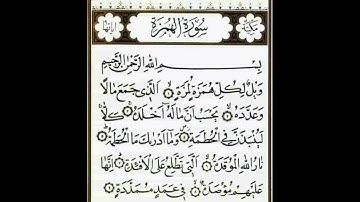 سورة الهمزة
بسم الله الرحمن الرحيم
ويل لكل همزة لمزة الذي جمع مالا
وعدده يحسب ان ماله اخلده كلا
لينبذن في الحطمة وما ادريك ما الحطمة
نار الله الموقدة التي تطلع على الافئدة انها
عليهم مؤصدة في عمد ممددة